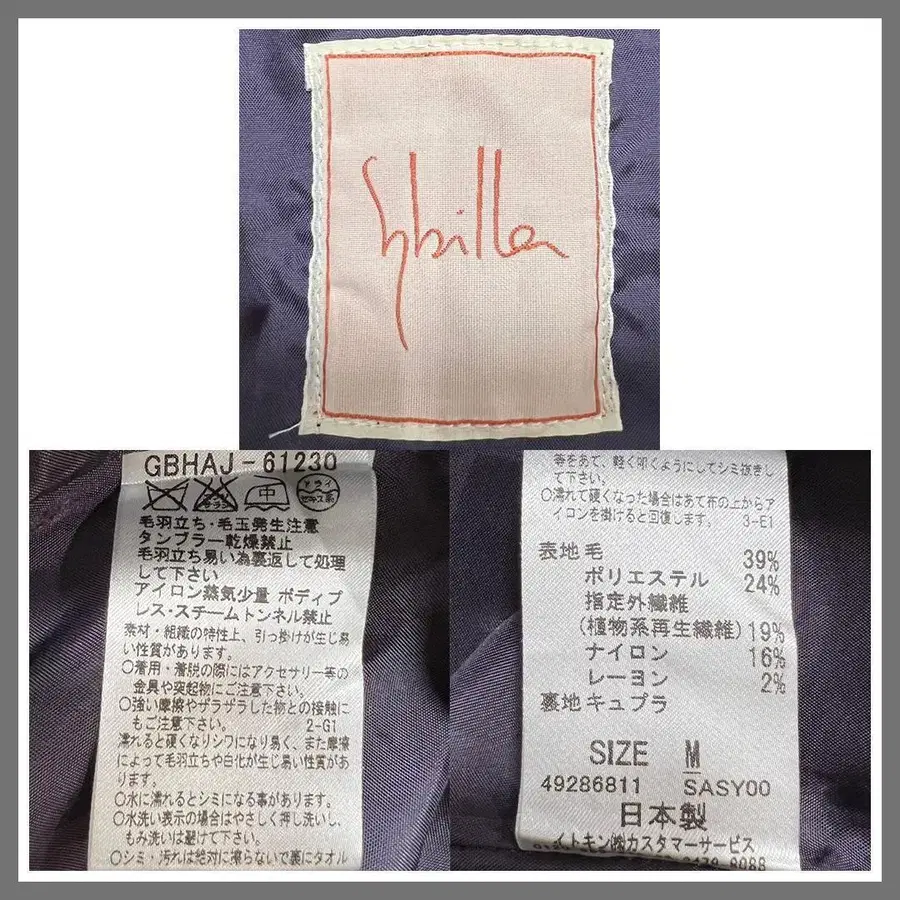 Sybilla
GBHAJ-61230
毛羽立ち・毛玉発生注意
タンブラー乾燥禁止
毛羽立ち易い為裏返して処理
して下さい
アイロン蒸気少量 ボディプ
レス・スチームトンネル禁止
素材・組織の特性上、引っ掛けが生じ易
い性質があります。
○着用・着脱の際にはアクセサリー等の
金具や突起物にご注意下さい。
○強い摩擦やザラザラした物との接触に
もご注意下さい。 2-G1
濡れると硬くなりシワになり易く、また摩擦
によって毛羽立ちや白化が生じ易い性質があり
ます。
○水に濡れるとシミになる事があります。
○水洗い表示の場合はやさしく押し洗いし、
もみ洗いは避けて下さい。
○シミ・汚れは絶対に擦らないで裏にタオル
等をあて、軽く叩くようにしてシミ抜きし
て下さい。
○濡れて硬くなった場合はあて布の上からア
イロンを掛けると回復します。 3-E1
表地 毛 39%
ポリエステル 24%
指定外繊維
(植物系再生繊維) 19%
ナイロン 16%
レーヨン 2%
裏地 キュプラ
SIZE M
49286811 SASY00
日本製
イトキン㈱カスタマーサービス